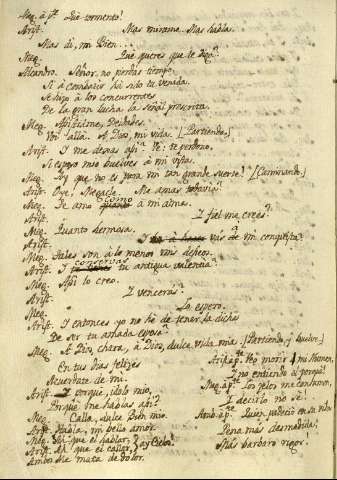 Meg. à pte. Què tormento!
Arist. Mas mirame. Mas habla.
Mas di, mi Bien...
Meg. Què quieres que te diga?
Alcandro. Señor, no perdas tiempo,
Si à combatir ha sido tu venida.
Se hizo à los concurrentes
De la gran lucha la señal prescrita.
Meg. Asistidme, Deidades.
Voi allà. A Dios, mi vida. [Partiendo.]
Arist. I me dexas asi? Ve: te perdono.
Si esposo mio buelves à mi vista.
Meg. Ay que no es para mi tan grande suerte! [Caminando.]
Arist. Oye, Megacle. Me amas todavia?
Meg. Te amo como à mi alma.
Arist. I fiel me crees?
Meg. Quanto hermosa.
Arist. I vàs à mi conquista?
Meg. Tales son à lo menos mis deseos.
Arist. I conservas tu antigua valentia?
Meg. Asi lo creo.
Arist. I venceràs?
Meg. Lo espero.
Arist. I entonces yo no hè de tener la dicha
De ser tu amada esposa?
Meg. A Dios, chara, à Dios, dulce vida mia [Partiendo, y buelve.]
En tus dias felizes
Acuerdate de mi.
Arist. I porque, idolo mio,
Porquè me hablas asi?
Meg. Calla, dulce Bien mio.
Arist. Habla, mi bello amor.
Meg. Ah que el hablar,
Arist. Ah que el callar, ay Cielo!
Ambos. Me mata de dolor.
Arist. ap. Veo morir à mi Numen,
I no entiendo el porquè!
Meg. ap. Los zelos me consumen,
I decirlo no sè!
Amb. ap. Quien padeciò en su vida
Pena mas desmedida,
Mas barbaro rigor!